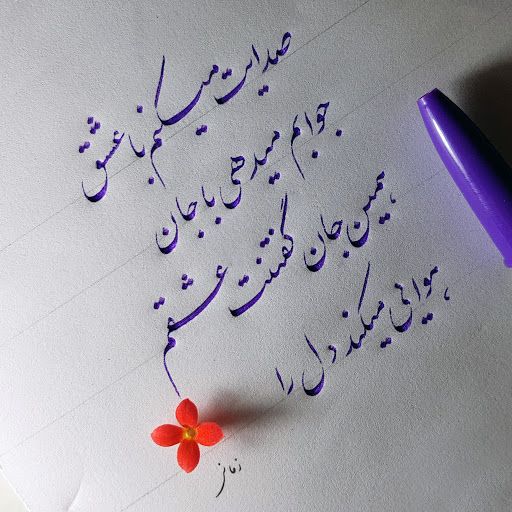 صدایت میکنم با عشق
جوابم میدهی با جان
همین جان گفتنت عشقم
هوایی میکند دل را
زمانی